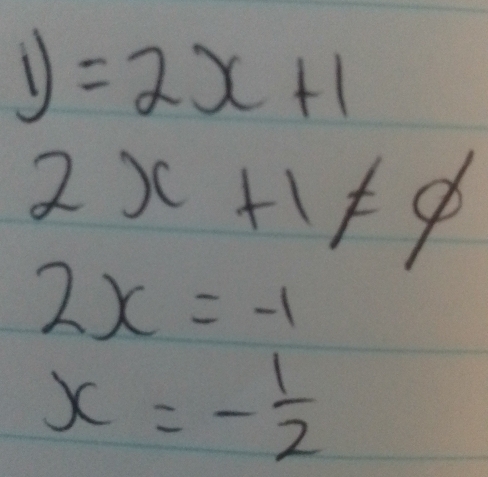 1) = 2x + 1
2x + 1 ≠ 0
2x = -1
x = -1/2